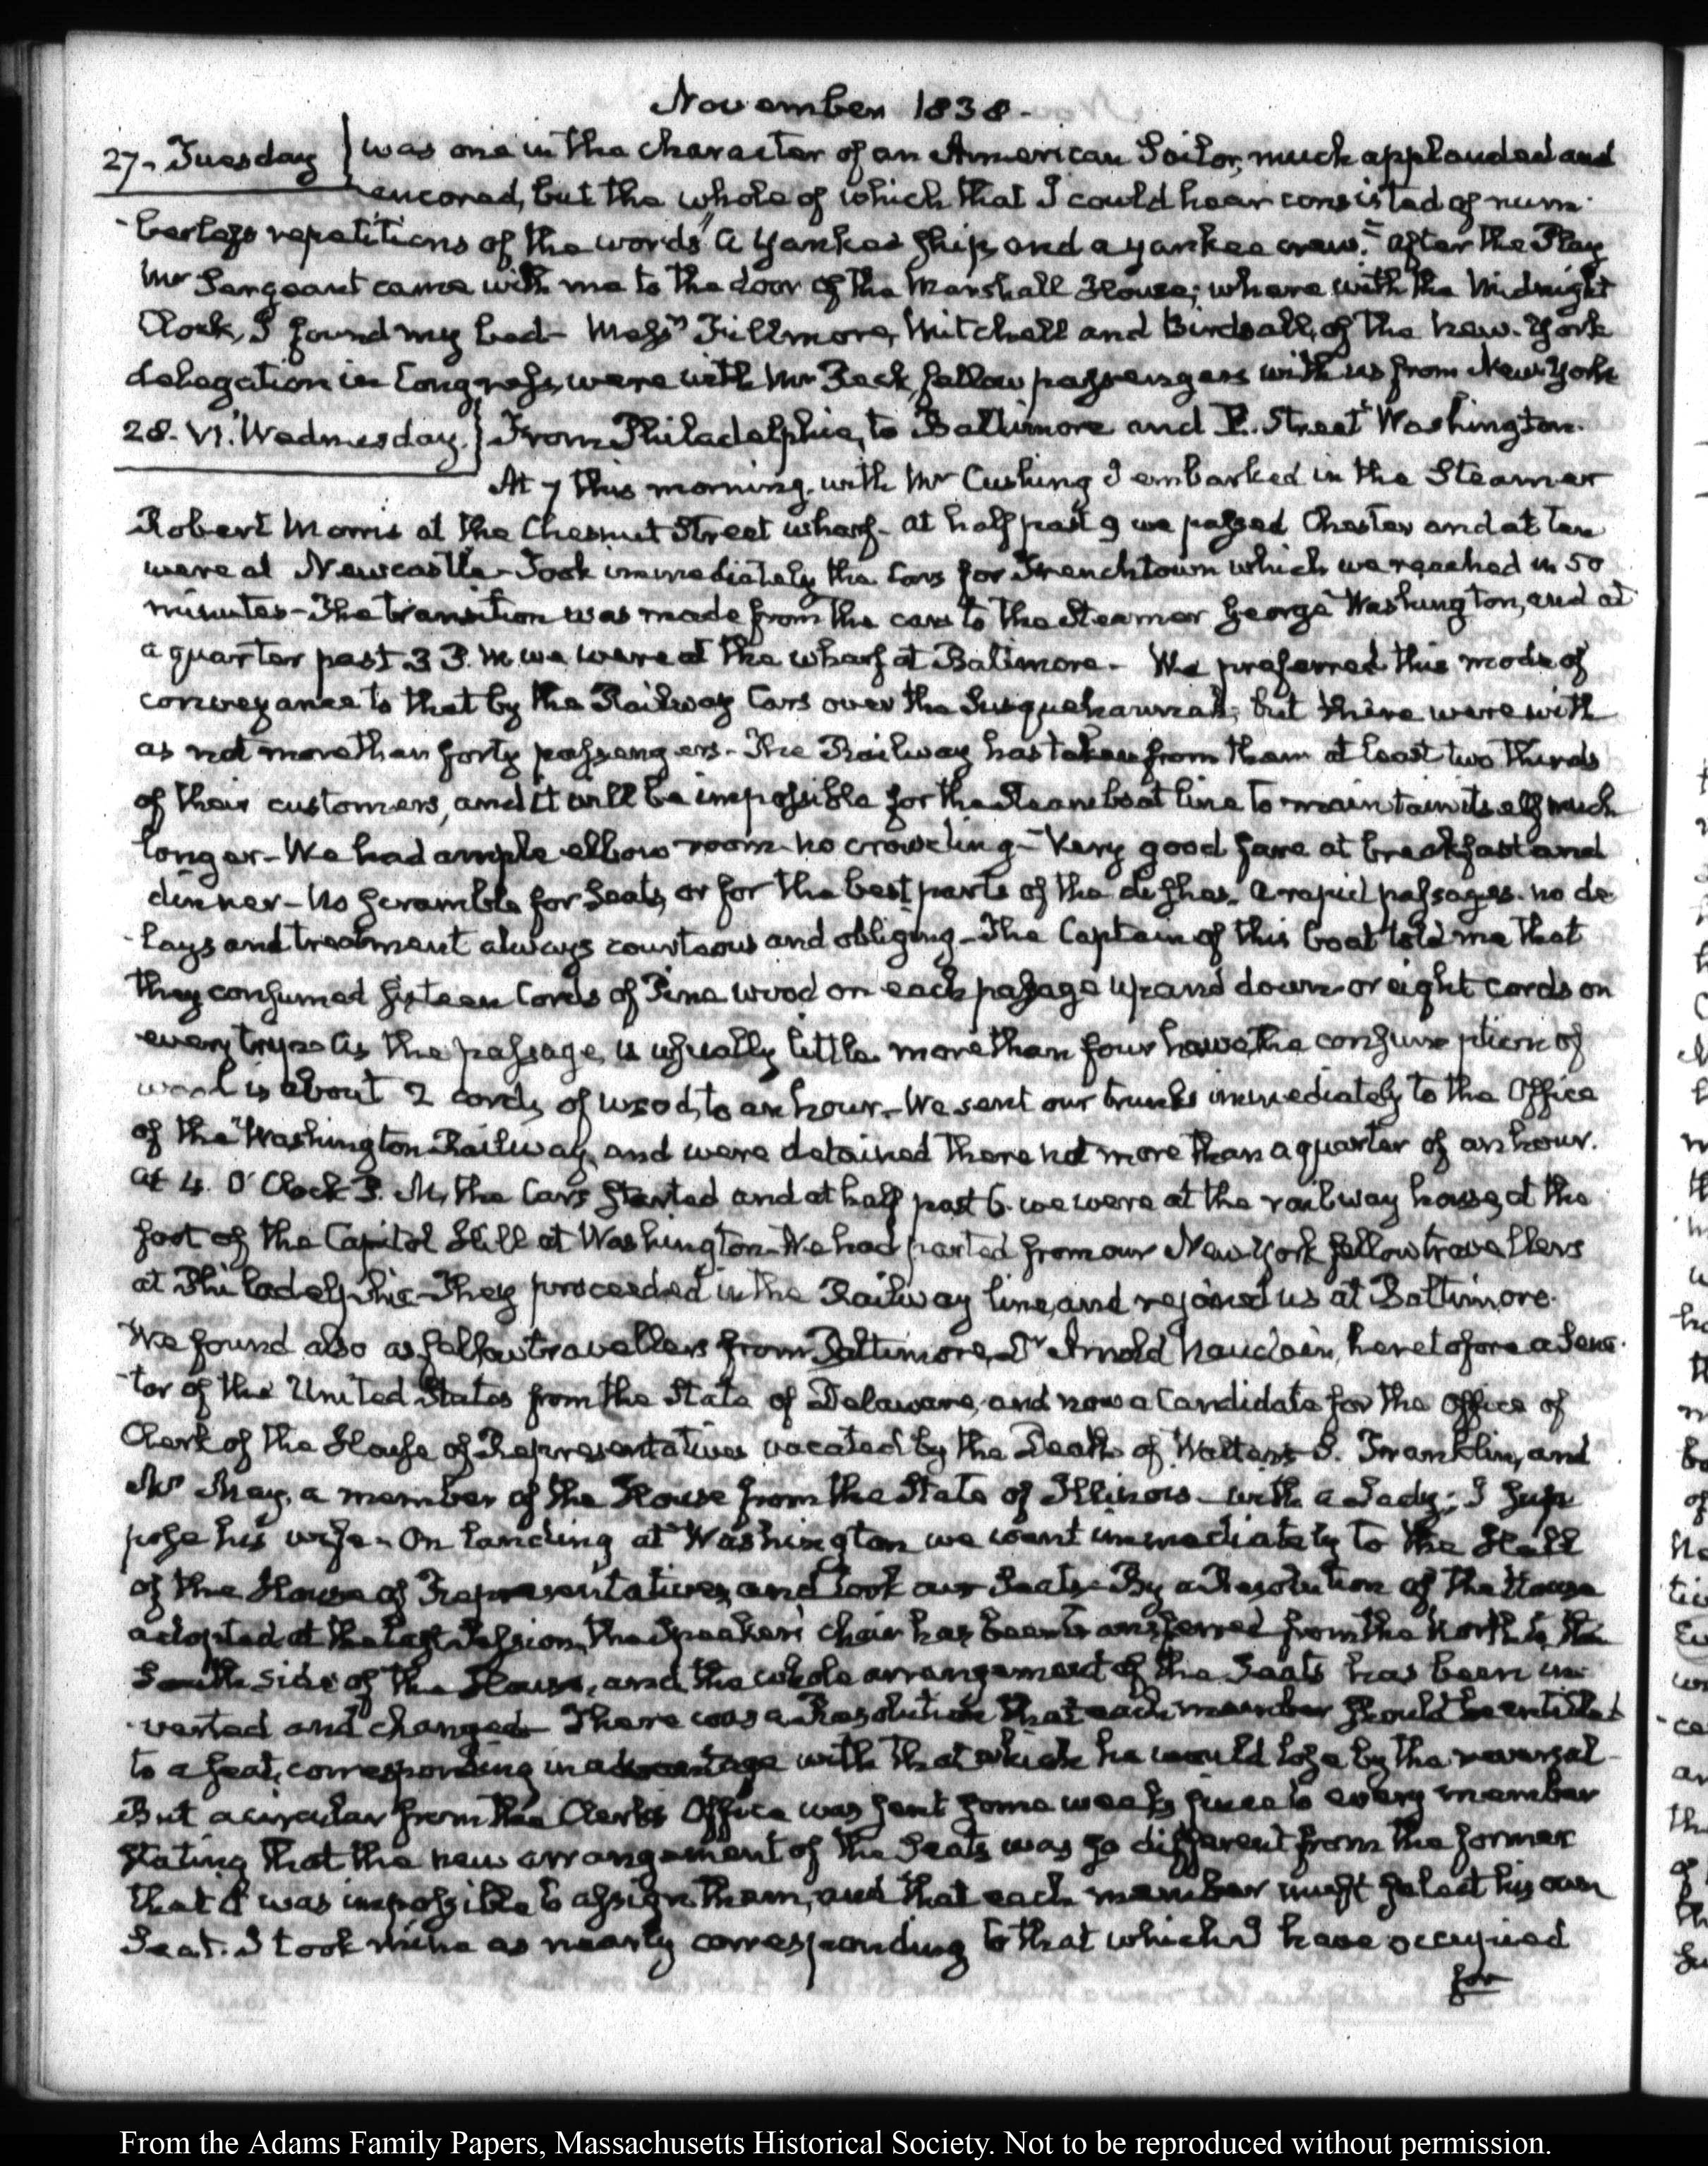 November 1838.
27. Tuesday } was one in the character of an American Sailor, much applauded and
encored, but the whole of which that I could hear consisted of num-
-berless repetitions of the words "a Yankee ship, and a yankee crew." After the Play
Mr Sergeant came with me to the door of the Marshall House; where with the Midnight
Clock, I found my bed— Messrs Fillmore, Mitchell and Birdsall, of the New-York
delegation in Congress, were with Mr Peck, fellow passengers with us from New York
28. VI. Wednesday. } From Philadelphia, to Baltimore and F. Street Washington.
At 7 this morning, with Mr Cushing I embarked in the Steamer
Robert Morris at the Chesnut Street wharf— at half past 9 we passed Chester and at ten
were at Newcastle— Took immediately the Cars for Frenchtown which we reached in 50
minutes— The transition was made from the cars to the Steamer George Washington, and at
a quarter past 3 P.M we were at the wharf at Baltimore— We preferred this mode of
conveyance to that by the Railway Cars over the Susquehannah; but there were with
us not more than forty passengers— The Railway has taken from them at least two thirds
of their customers, and it will be impossible for the Steamboat line to maintain itself much
longer— We had ample elbow room— no crowding— Very good fare at breakfast and
dinner— No scramble for seats, or for the best parts of the dishes— a rapid passage— no de-
-lays and treatment always courteous and obliging— The Captain of this boat told me that
they consumed sixteen Cords of Pine wood on each passage up and down— or eight cords on
every trip— As the passage, is usually little more than four hours, the consumption of
wood is about 2 cords, of wood, to an hour— We sent our trunks immediately to the Office
of the Washington Railway, and were detained there not more than a quarter of an hour.
At 4. O'Clock P.M, the Cars started and at half past 6. we were at the railway house, at the
foot of the Capitol Hill at Washington— We had parted from our New York fellow travellers
at Philadelphia— They proceeded in the Railway line, and rejoined us at Baltimore.
We found also as fellow travellers from Baltimore, Dr Arnold Naudain, heretofore a Sena-
-tor of the United States from the State of Delaware, and now a Candidate for the office of
Clerk of the House of Representatives vacated by the Death of Walter S. Franklin, and
Mr May, a member of the House from the State of Illinois— with a Lady; I sup-
pose his wife— On landing at Washington we went immediately to the Hall
of the House of Representatives, and took our Seats— By a Resolution of the House
adopted at the last Session, the Speaker's chair has been transferred from the North to the
South side of the House, and the whole arrangement of the Seats has been in-
-verted and changed— There was a Resolution that each member should be entitled
to a seat, corresponding in advantage with that which he would lose by the reversal—
But a circular from the Clerk's Office was sent some weeks since to every member
stating that the new arrangement of the Seats was so different from the former
that it was impossible to assign them, and that each member must select his own
Seat. I took mine as nearly corresponding to that which I have occupied
for
From the Adams Family Papers, Massachusetts Historical Society. Not to be reproduced without permission.